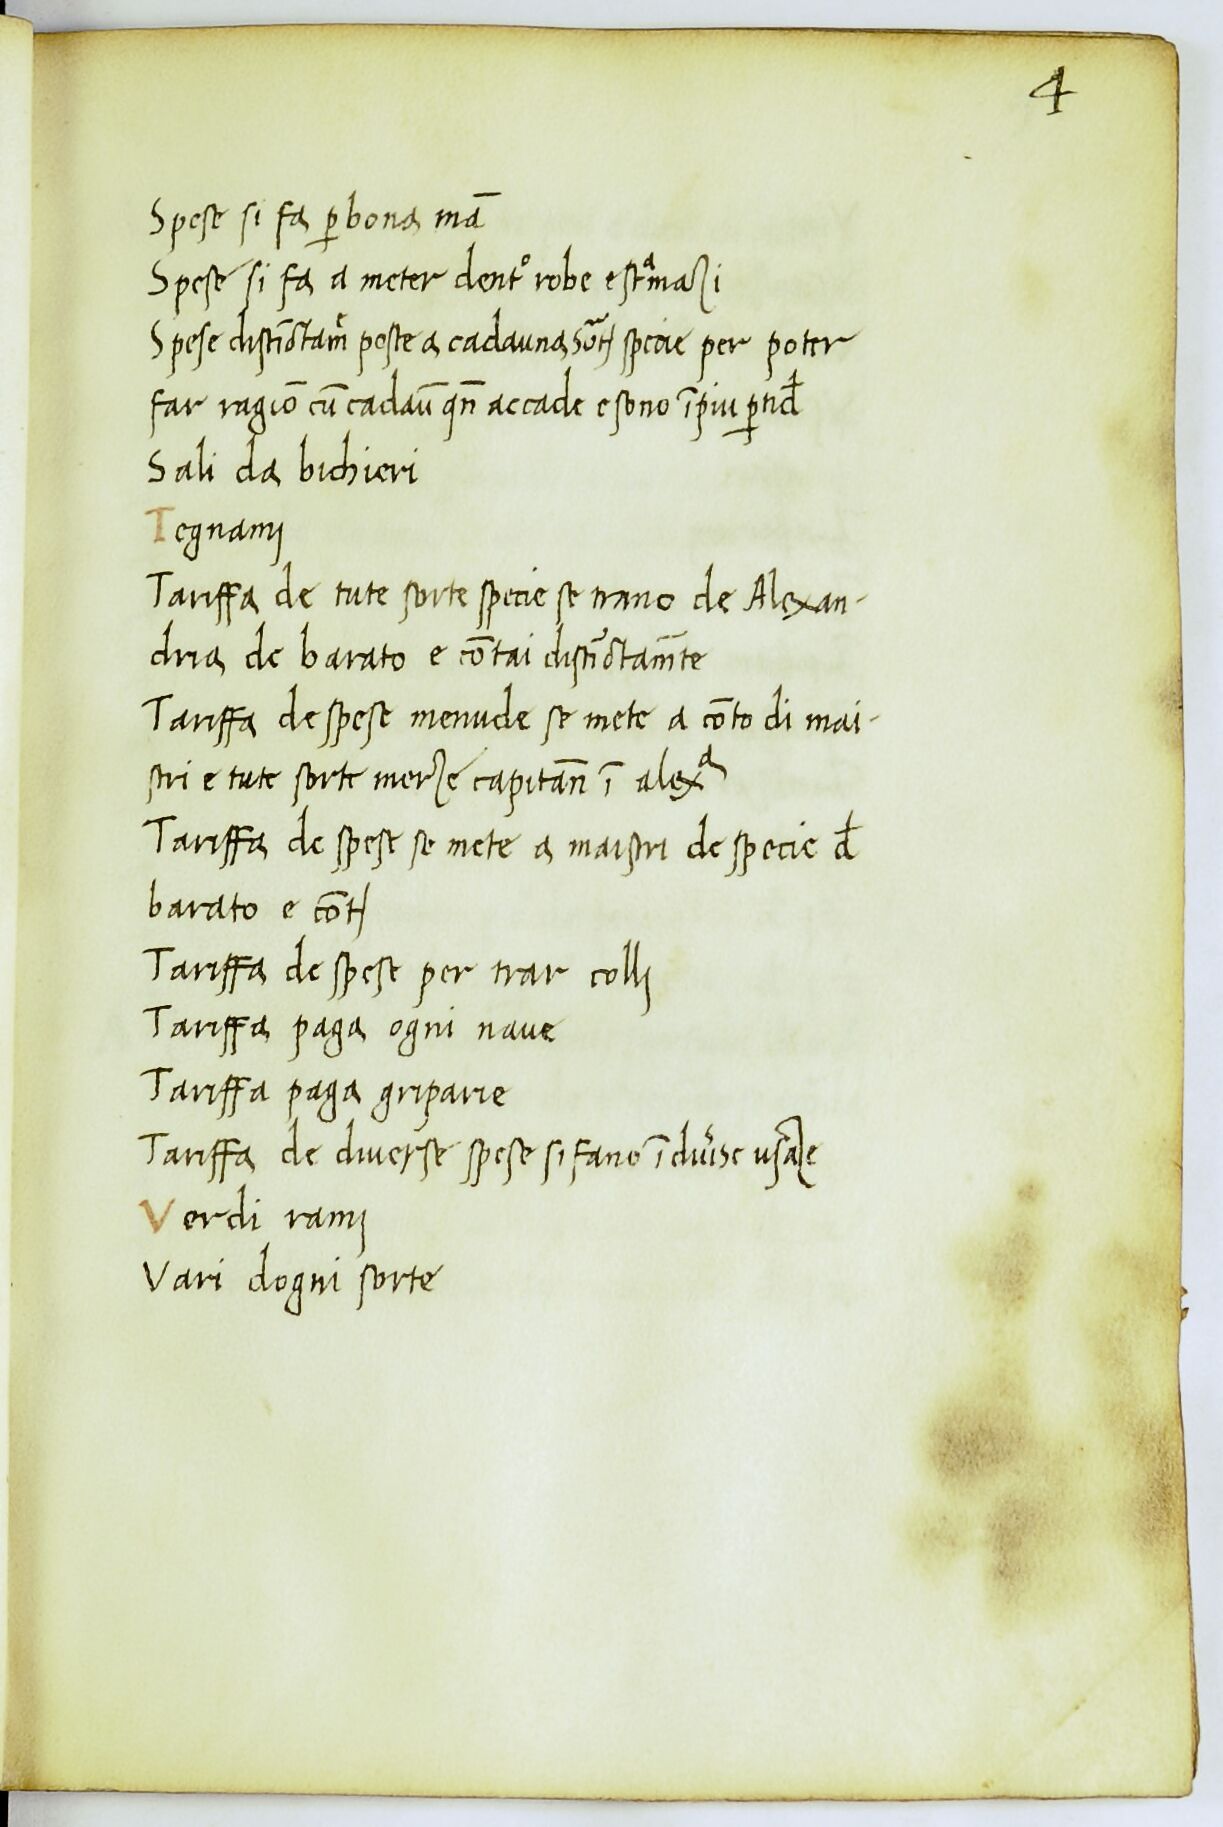 4
Spese si fa ꝑ bona mā
Spese si fa a meter dentº robe e stᵃmazi
Spese distīctam̄ poste a cadauna specie per poter
far ragiō cū cadaū qn̄ accade e sono ī piu
Sali da bichieri
Tegnamj
Tariffa de tute sorte specie se trano de Alexan-
dria de barato e cōtai distīctam̄te
Tariffa de spese menude se mete a cōto di mai-
stri e tute sorte merze capitan̄ ī alexᵃ
Tariffa de spese se mete a maistri de specie đ
barato e cōtj
Tariffa de spese per trar collj
Tariffa paga ogni naue
Tariffa paga griparie
Tariffa de diuerse spese si fano ī
Verdi ramj
Vari dogni sorte